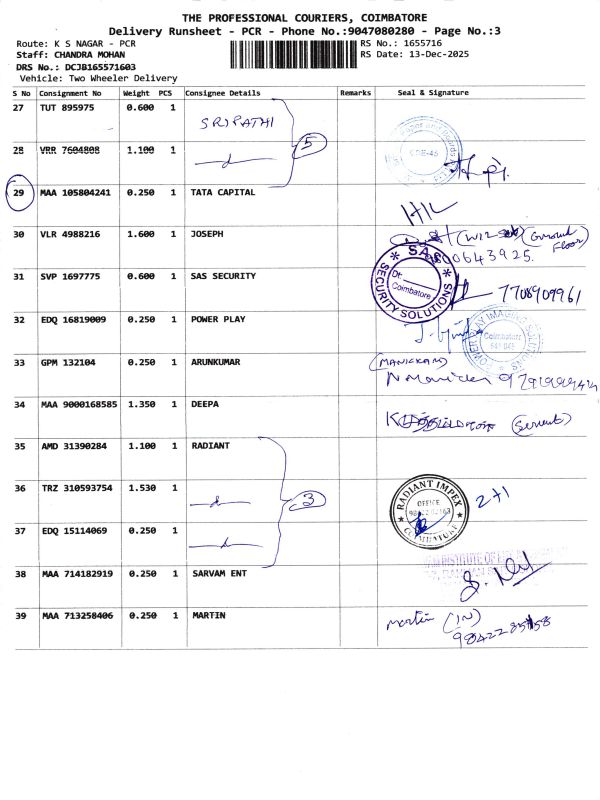 THE PROFESSIONAL COURIERS, COIMBATORE
Delivery Runsheet - PCR - Phone No.:9047080280 - Page No.:3
Route: K S NAGAR - PCR RS No.: 1655716
Staff: CHANDRA MOHAN RS Date: 13-Dec-2025
DRS No.: DCJB165571603
Vehicle: Two Wheeler Delivery
S No Consignment No Weight PCS Consignee Details Remarks Seal & Signature
27 TUT 895975 0.600 1 SRIPATHI
28 VRR 7604808 1.100 1 5
29 MAA 105804241 0.250 1 TATA CAPITAL
30 VLR 4988216 1.600 1 JOSEPH (Ground Floor)
31 SVP 1697775 0.600 1 SAS SECURITY * SAS * SECURITY SOLUTIONS Coimbatore 7708909961
32 EDQ 16819009 0.250 1 POWER PLAY POWER PLAY IMAGING SOLUTIONS Coimbatore
33 GPM 132104 0.250 1 ARUNKUMAR
34 MAA 9000168585 1.350 1 DEEPA (Servent)
35 AMD 31390284 1.100 1 RADIANT
36 TRZ 310593754 1.530 1 3 RADIANT IMPEX OFFICE COIMBATORE 2+1
37 EDQ 15114069 0.250 1
38 MAA 714182919 0.250 1 SARVAM ENT
39 MAA 713258406 0.250 1 MARTIN martin (IN)